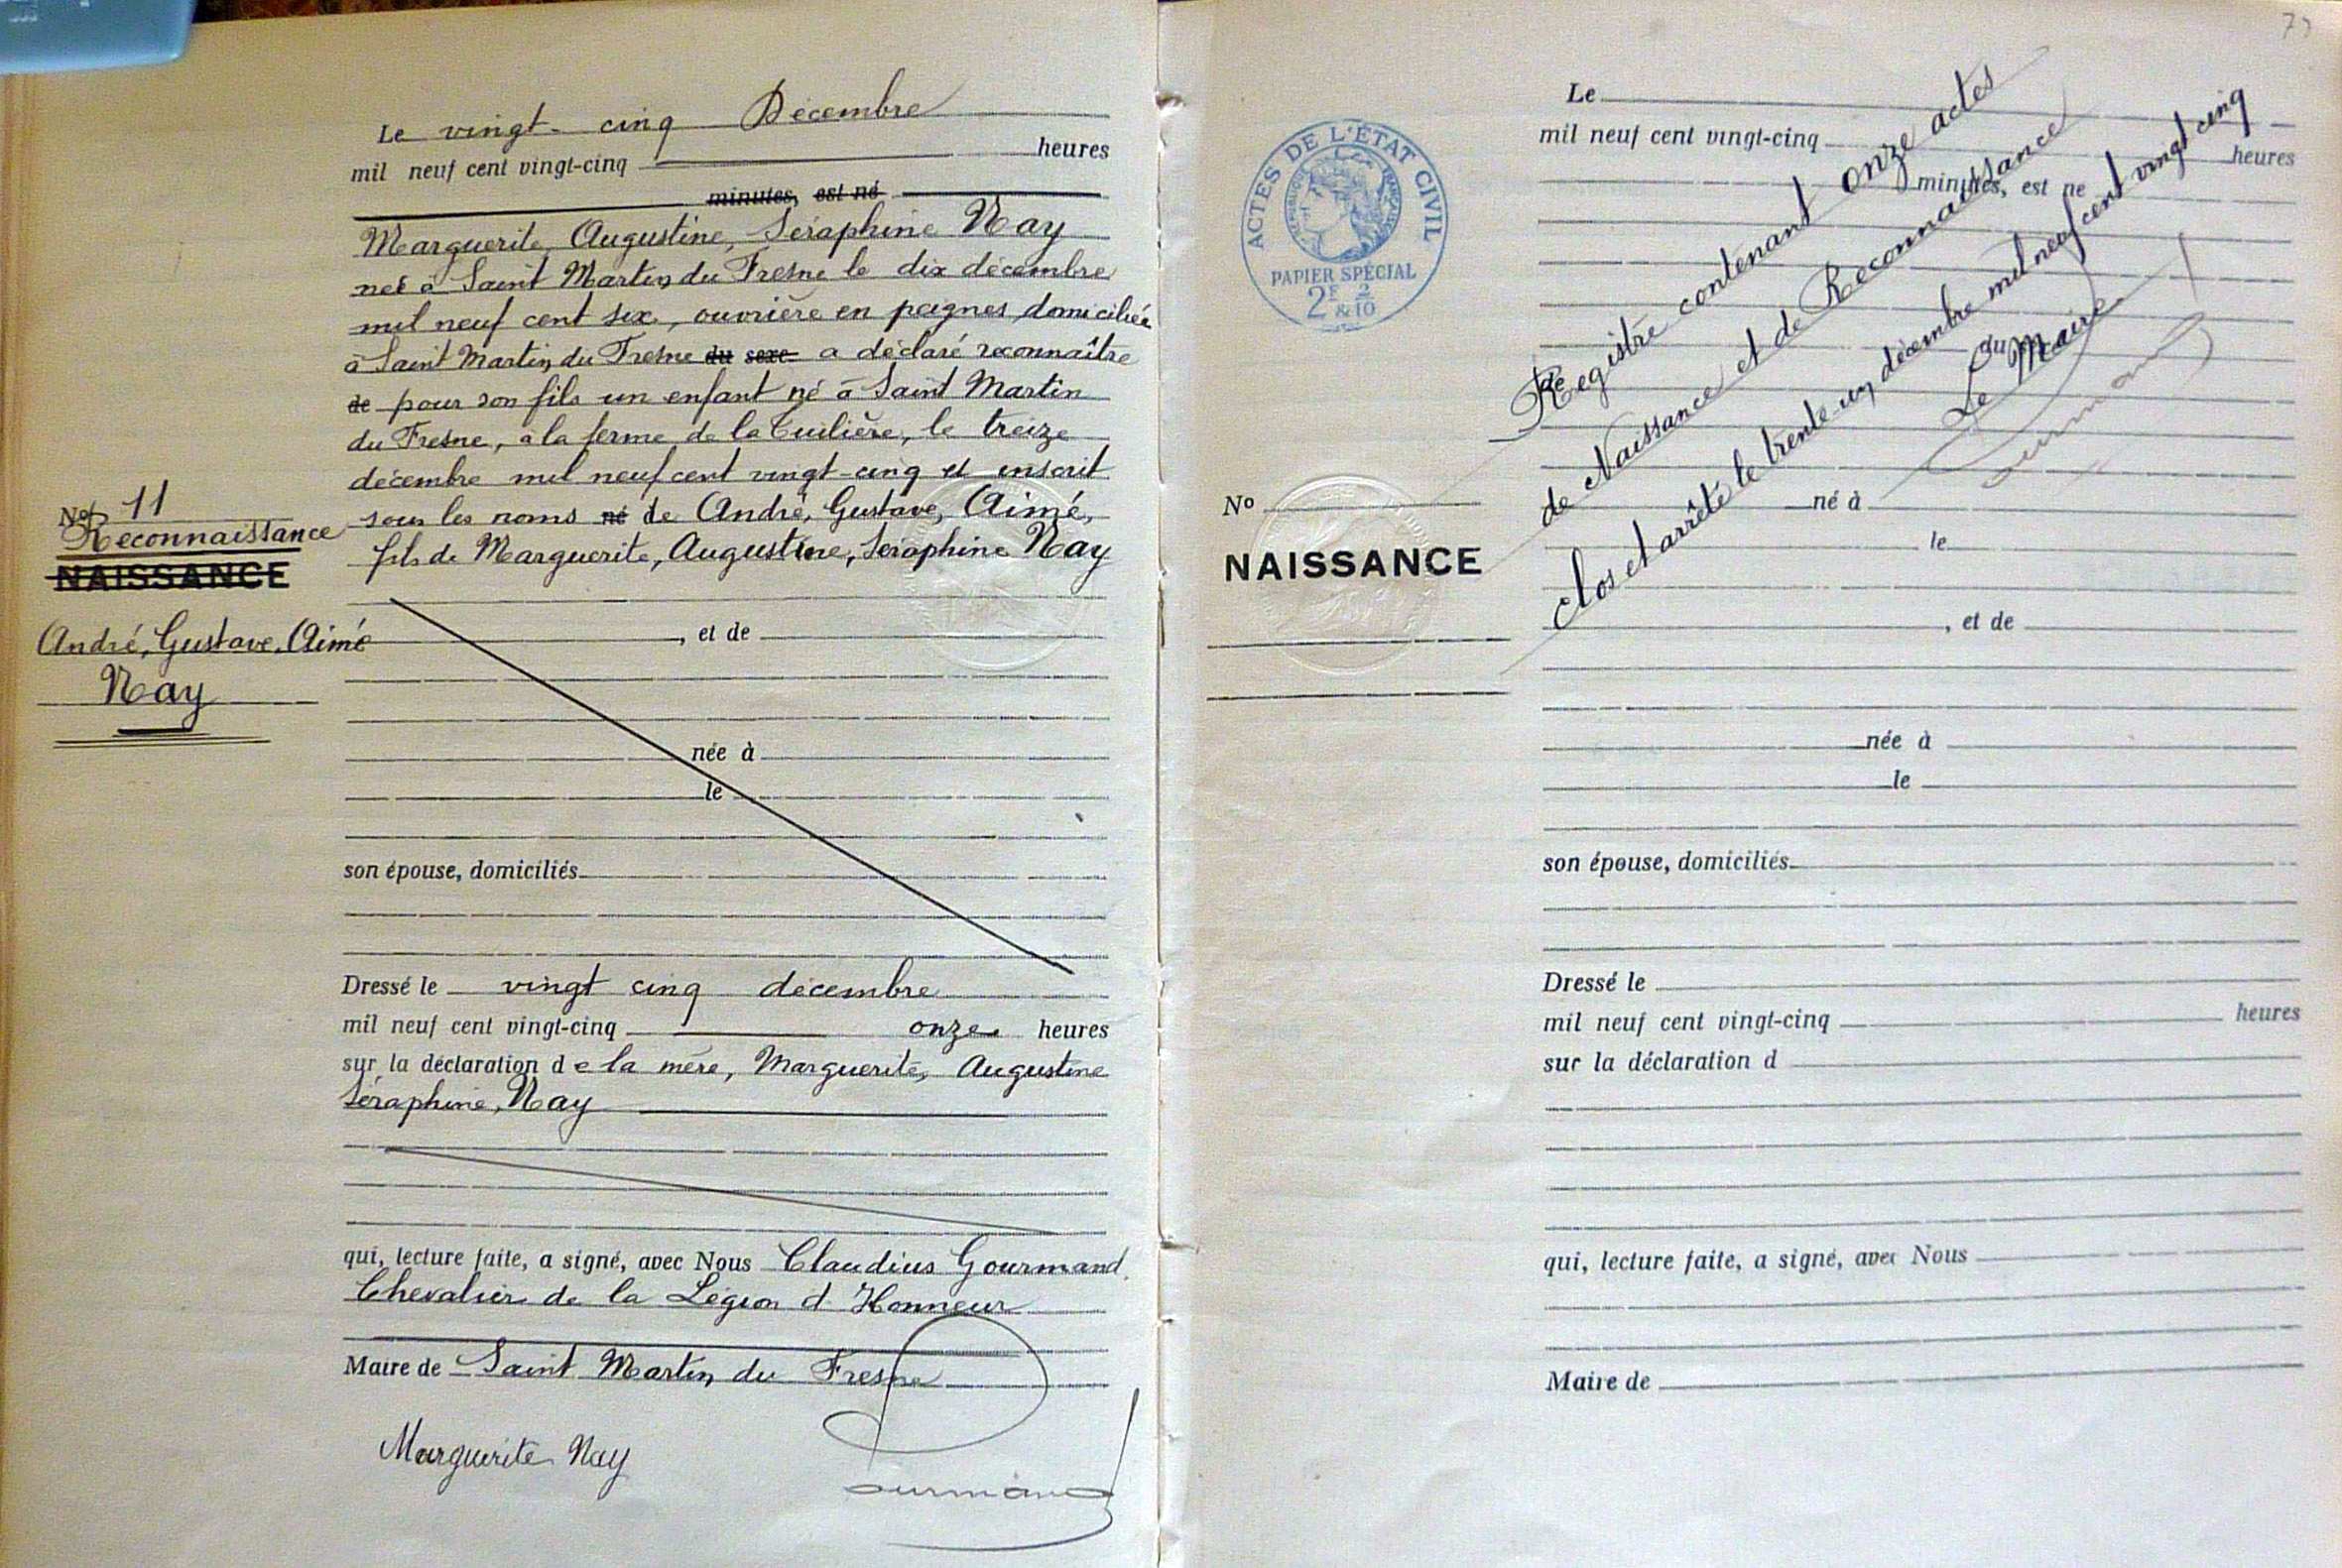 Le vingt-cinq Décembre
mil neuf cent vingt-cinq heures
minutes, est né
Marguerite, Augustine, Séraphine Nay
née à Saint Martin du Fresne le dix décembre
mil neuf cent six, ouvrière en peignes domiciliée
à Saint Martin du Fresne du sexe a déclaré reconnaître
de pour son fils un enfant né à Saint Martin
du Fresne, à la ferme de la Tuilière, le treize
décembre mil neuf cent vingt-cinq et inscrit
sous les noms né de André, Gustave, Aimé,
fils de Marguerite, Augustine, Séraphine Nay
No 11
Reconnaissance
NAISSANCE
André, Gustave, Aimé
Nay
, et de
née à
le
son épouse, domiciliés
Dressé le vingt cinq décembre
mil neuf cent vingt-cinq onze heures
sur la déclaration de la mère, Marguerite, Augustine
Séraphine, Nay
qui, lecture faite, a signé, avec Nous Claudius Gourmand,
Chevalier de la Légion d'Honneur
Maire de Saint Martin du Fresne
Marguerite Nay
Gourmand
Le
mil neuf cent vingt-cinq heures
minutes, est né
ACTES DE L'ÉTAT CIVIL
PAPIER SPÉCIAL
2F 2
& 10
Registre contenant onze actes
de Naissance et de Reconnaissance
clos et arrêté le trente-un décembre mil neuf cent vingt cinq
Le Maire
Gourmand
du
de
No
NAISSANCE
né à
le
, et de
née à
le
son épouse, domiciliés
Dressé le
mil neuf cent vingt-cinq heures
sur la déclaration d
qui, lecture faite, a signé, avec Nous
Maire de